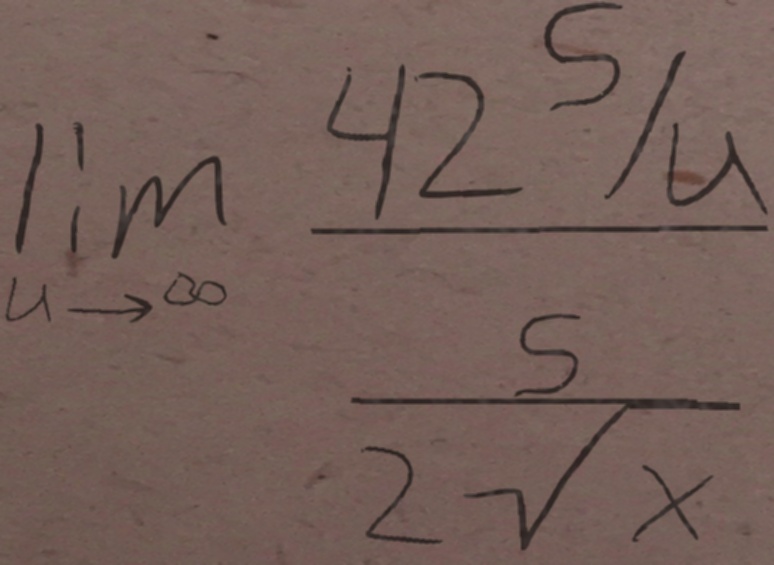 lim u→∞ 42^5/u
5
2√x